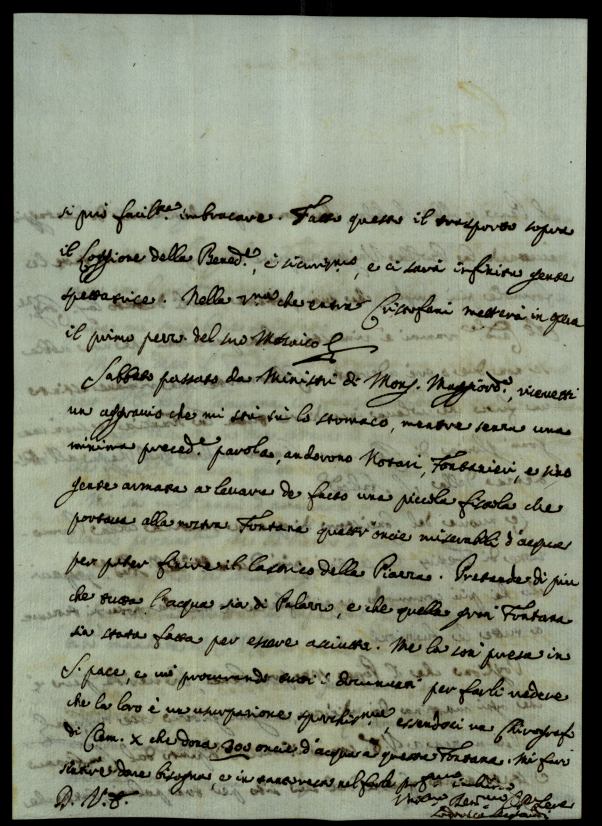 si può facil.te imbracare. Fatto questo il trasporto sopra
il Loggione della Bened.e, è sicuriss.o, e ci sarà infinita gente
spettatrice. Nella 7.na che entra Cristofani metterà in opera
il primo pezzo del suo Mosaico
Sabbato passato da Ministri di Mons. Maggiord.o, ricevetti
un aggravio che mi stà sù lo stomaco, mentre senza una
minima preced.e parola, andorono Notari, Fontanieri, e sino
gente armata a levare de facto una piccola fistola che
portava alla nostra Fontana quattr'oncie miserabili d'acqua
per poter finire il lastrico della Piazza. Pretende di più
che tutta l'acqua sia di Palazzo, e che quella gran Fontana
sia stata fatta per essere asciutta. Me la son presa in
S. pace, e mi procurando tutti i documenti per farli vedere
che la loro è una usurpazione sporchiss.ma, essendoci un Chirografo
di Clem. X che dona 300 oncie d'acqua a questa Fontana. Mi farò
sentire dove bisogna, e in tanto resto nel farle prof.ma
D. V. S.